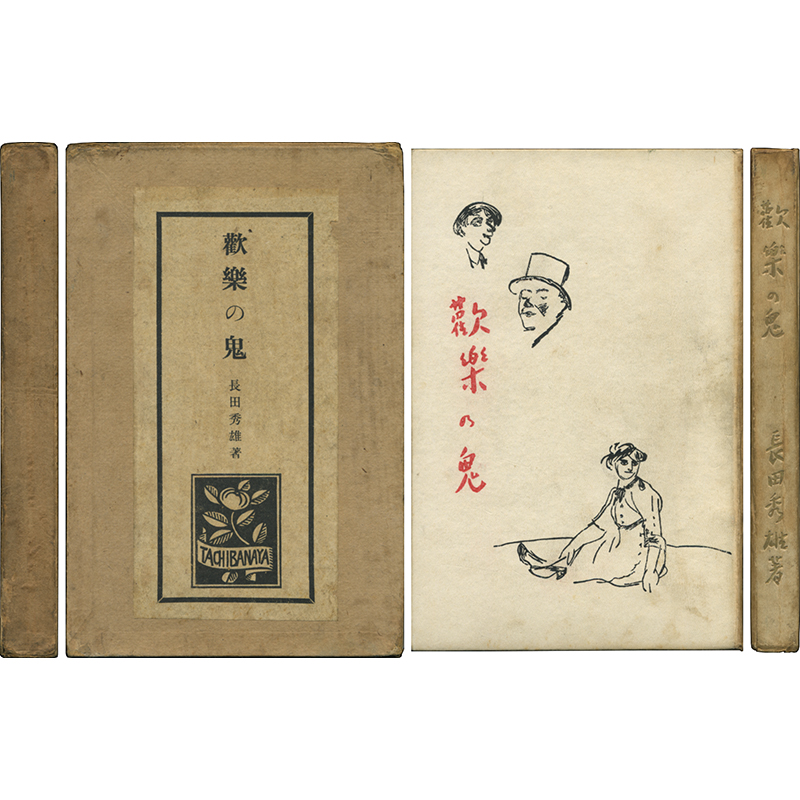 歡樂の鬼
長田秀雄著
TACHIBANAYA
歡樂の鬼
歡樂の鬼
長田秀雄著